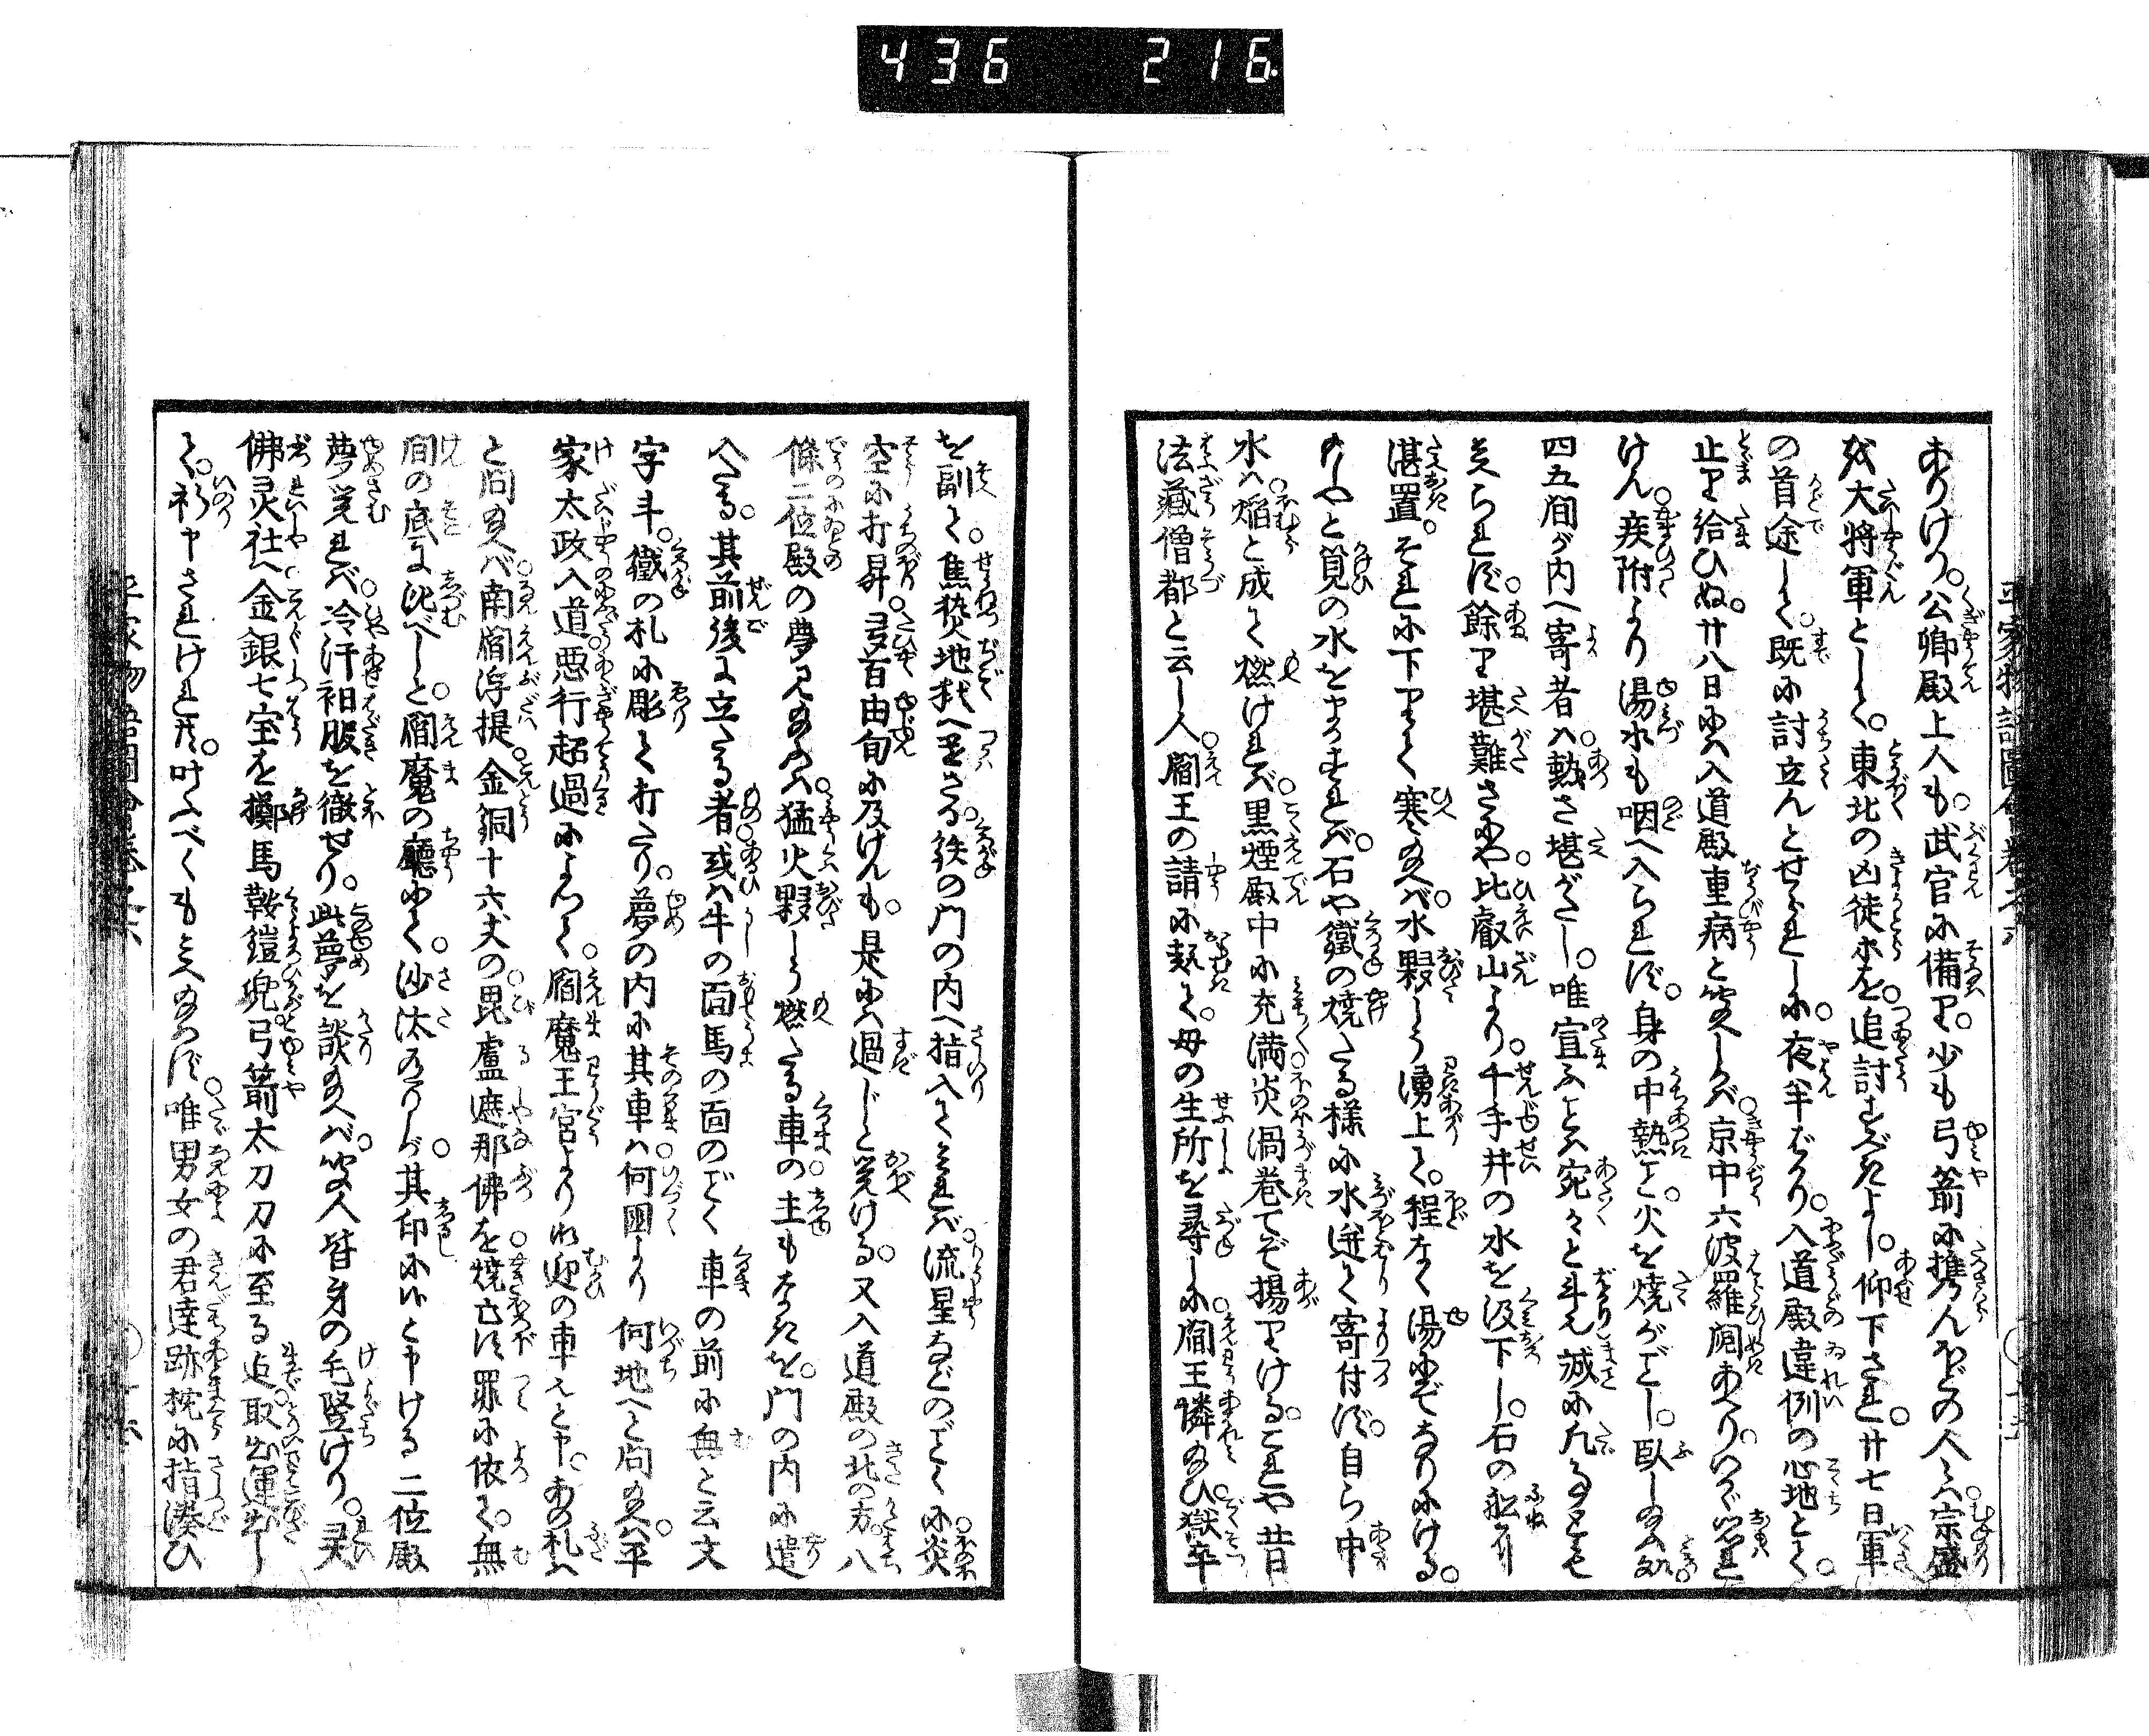 436 216
ありけり。公卿殿上人も。武官に備り。少も弓箭に携らんほどの人々は。宗盛
を大将軍として。東北の凶徒等を。追討すべきよし。仰下さる。廿七日軍
の首途して。既に討立んとせられしに。夜半ばかり。入道殿違例の心地とて。
止り給ひぬ。廿八日には入道殿重病と聞えしかば。京中六波羅閧あへり。
けん。疾附より湯水も咽へ入られず。身の中熱こと。火を焼がごし。臥し給へる処。
四五間が内へ寄者は。熱さ堪がたし。唯宣ふことは宛々と斗也。誠に凡る
えられず。餘り堪難さにや。比叡山より。千手井の水を汲下し。石の船に
湛置。それに下りて寒え給へば。水夥しう湧上て。程なく湯にぞなりにける。
もしやと筧の水をまかすれば。石や鐵の焼たる様に水迸て寄付ず。自ら中
水は。焔と成て燃ければ。黒煙殿中に充満。炎渦巻てぞ揚りける。これや昔
法藏僧都と云し人。閻王の請に赴て。母の生所を尋しに。閻王憐給ひ。獄卒
を副て。焦熱地獄へ至さる。鉄の門の内へ指入て見れば。流星などのごとくに。炎
空に打昇。多百由旬に及けんも。是には過じと覚ける。又入道殿の北の方。八
條二位殿の夢に見給ふは。猛火夥しう燃たる車の。主もなきを。門の内に遣
入たる。其前後に立たる者。或は牛の面馬の面のごとく車の前に無と云文
字斗。鐵の札に彫て打たり。夢の内に其車は。何國より何地へと問給へば。平
家太政入道。悪行超過によつて。閻魔王宮より御迎の車也と申。あの札は
と問給へば。南閻浮提。金銅十六丈の。毘盧遮那佛を。焼亡す罪に依て。無
間の底に沈べしと。閻魔の廳にて。沙汰ありしが。其印にはと申ける二位殿
夢覚れば。冷汗袒服を徹せり。此夢を談給へば。聞人皆身の毛竪けり。灵
佛灵社へ。金銀七宝を擲馬鞍鎧兜弓箭太刀刀に至る迄。取出運出し
て。祈申されけれ共。叶ふべくも見え給はず。唯男女の君達跡枕に指湊ひ